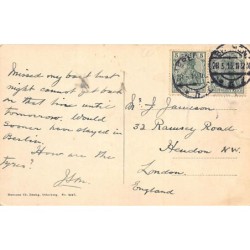 Missed my boat last
night cannot get back
on that line until
tomorrow. Would
sooner have stayed in
Berlin.
How are the
tyres?
S. J. Jameson
32 Ramsey Road
Hendon N.W.
London.
England